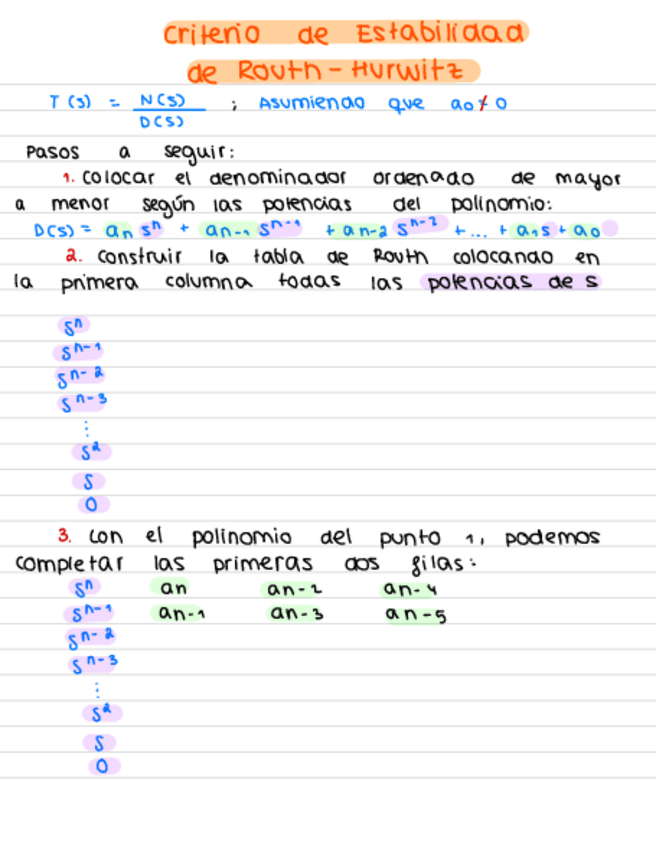 Criterio de Estabilidad
de Routh-Hurwitz
T(s) = N(s)/D(s) ; Asumiendo que a₀ ≠ 0
Pasos a seguir:
1. Colocar el denominador ordenado de mayor
a menor según las potencias del polinomio:
D(s) = aₙ sⁿ + aₙ₋₁ sⁿ⁻¹ + aₙ₋₂ sⁿ⁻² + ... + a₁s + a₀
2. Construir la tabla de Routh colocando en
la primera columna todas las potencias de s
sⁿ
sⁿ⁻¹
sⁿ⁻²
sⁿ⁻³
⋮
s²
s
0
3. Con el polinomio del punto 1, podemos
completar las primeras dos filas:
sⁿ an an-2 an-4
sⁿ⁻¹ an-1 an-3 an-5
sⁿ⁻²
sⁿ⁻³
⋮
s²
s
0